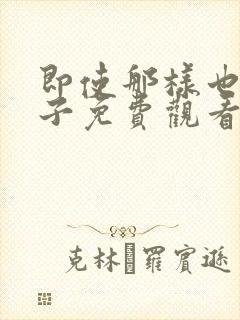 即使那樣也
子免費觀看
克林 羅賓遜